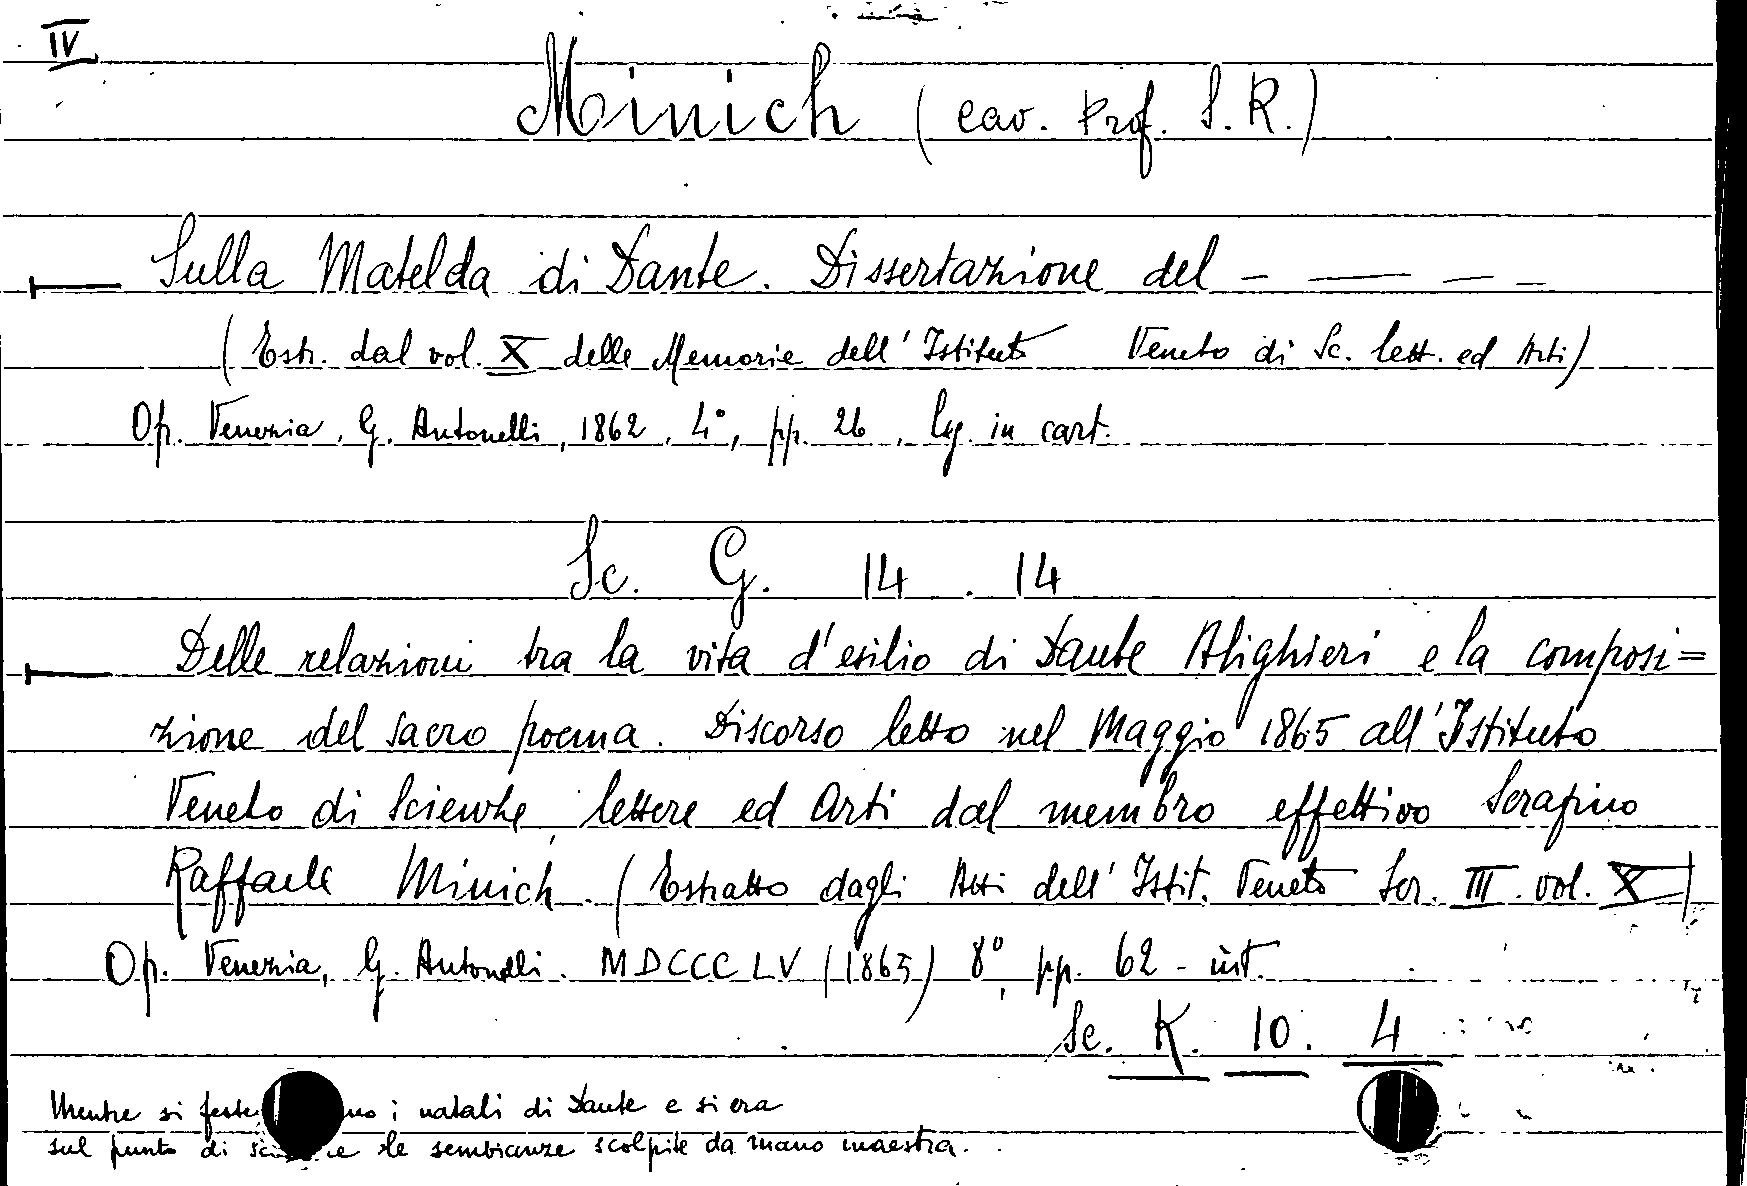 IV
Minich (cav. Prof. S. R.)
Sulla Matelda di Dante. Dissertazione del – — – –
(Estr. dal vol. X delle Memorie dell' Istituto Veneto di Sc. lett. ed Arti)
Op. Venezia, G. Antonelli, 1862, 4°, pp. 26, leg. in cart.
Sc. G. 14. 14
Delle relazioni tra la vita d'esilio di Dante Alighieri e la composi=
zione del sacro poema. Discorso letto nel Maggio 1865 all' Istituto
Veneto di Scienze, lettere ed Arti dal membro effettivo Serafino
Raffaele Minich. (Estratto dagli Atti dell' Istit. Veneto Ser. III vol. X)
Op. Venezia, G. Antonelli. MDCCCLV (1865) 8°, pp. 62 - int.
Sc. K. 10. 4
Mentre si i natali di Dante e si era
sul punto di le sembianze scolpite da mano maestra.